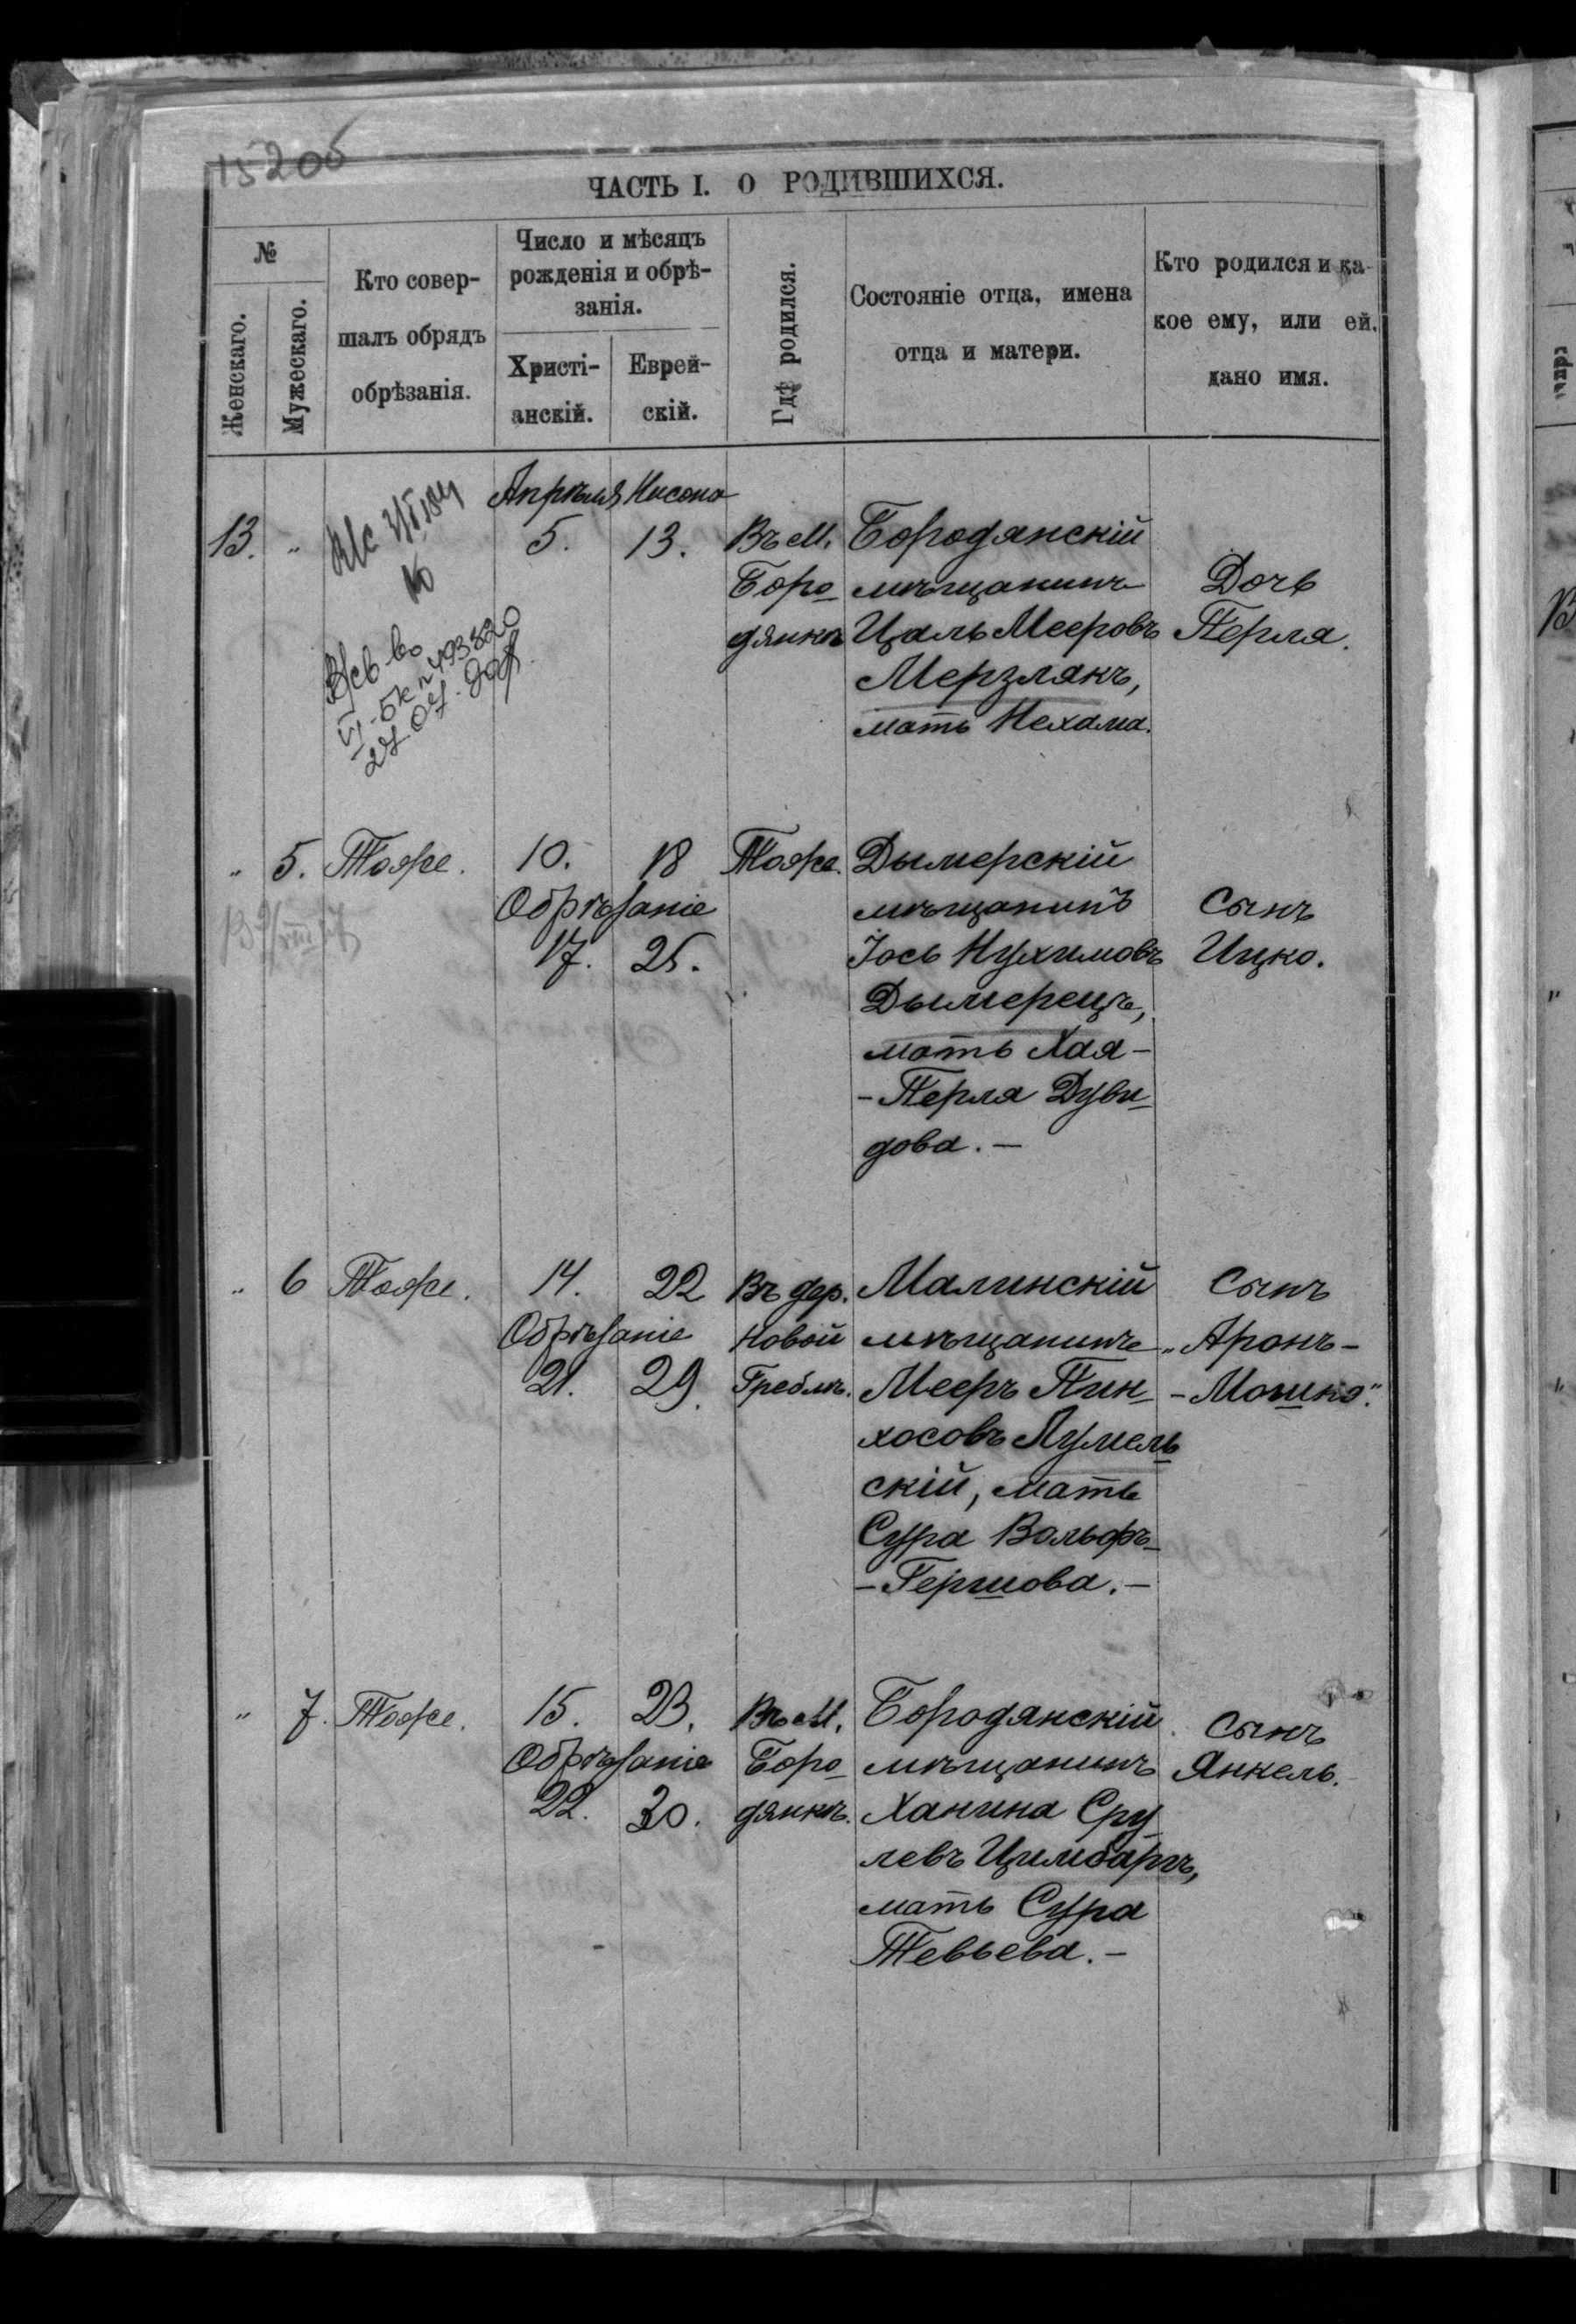 15206
ЧАСТЬ I. О РОДИВШИХСЯ.
№
Женскаго.
Мужескаго.
Кто совер-
шалъ обрядъ
обрѣзанія.
Число и мѣсяцъ
рожденія и обрѣ-
занія.
Христі-
анскій.
Еврей-
скій.
Гдѣ родился.
Состояніе отца, имена
отца и матери.
Кто родился и ка-
кое ему, или ей,
дано имя.
Апрѣля Нисона
13. „ 5. 13.
Въ м.
Боро
дянкѣ
Бородянскій
мѣщанинъ
Цаль Мееровъ
Мерзлякъ,
мать Нехама.
Дочь
Перля.
493820
„ 5. Тоже. 10. 18 Тоже.
Обрѣзаніе
17. 25.
Дымерскій
мѣщанинъ
Іось Нухимовъ
Дымерецъ,
мать Хая-
-Перля Дуви
дова.-
Сынъ
Ицко.
„ 6 Тоже. 14. 22
Обрѣзаніе
21. 29.
Въ дер.
Новой
Греблѣ.
Малинскій
мѣщанинъ
Мееръ Пин
хосовъ Лумель
скій, мать
Сура Вольфъ-
-Гершова.-
Сынъ
„Аронъ-
-Мошко."
„ 7. Тоже. 15. 23.
Обрѣзаніе
22. 30.
Въ м.
Боро
дянкѣ.
Бородянскій
мѣщанинъ
Ханина Сру
левъ Цимбаргъ,
мать Сура
Тевьева.-
Сынъ
Янкель.